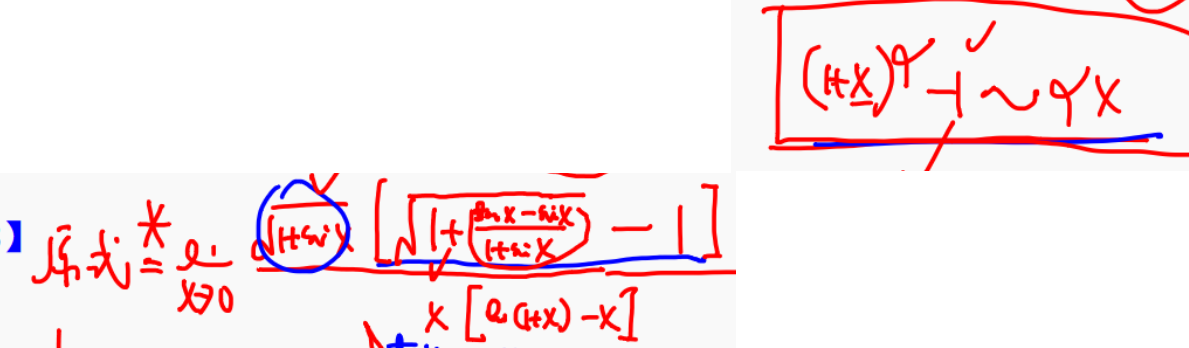 (1+x)^α -1 ~ αx
】原式 *= lim x→0 √(1+sin x) [√(1+ (tan x - sin x)/(1+sin x)) - 1] / x[ln(1+x) - x]